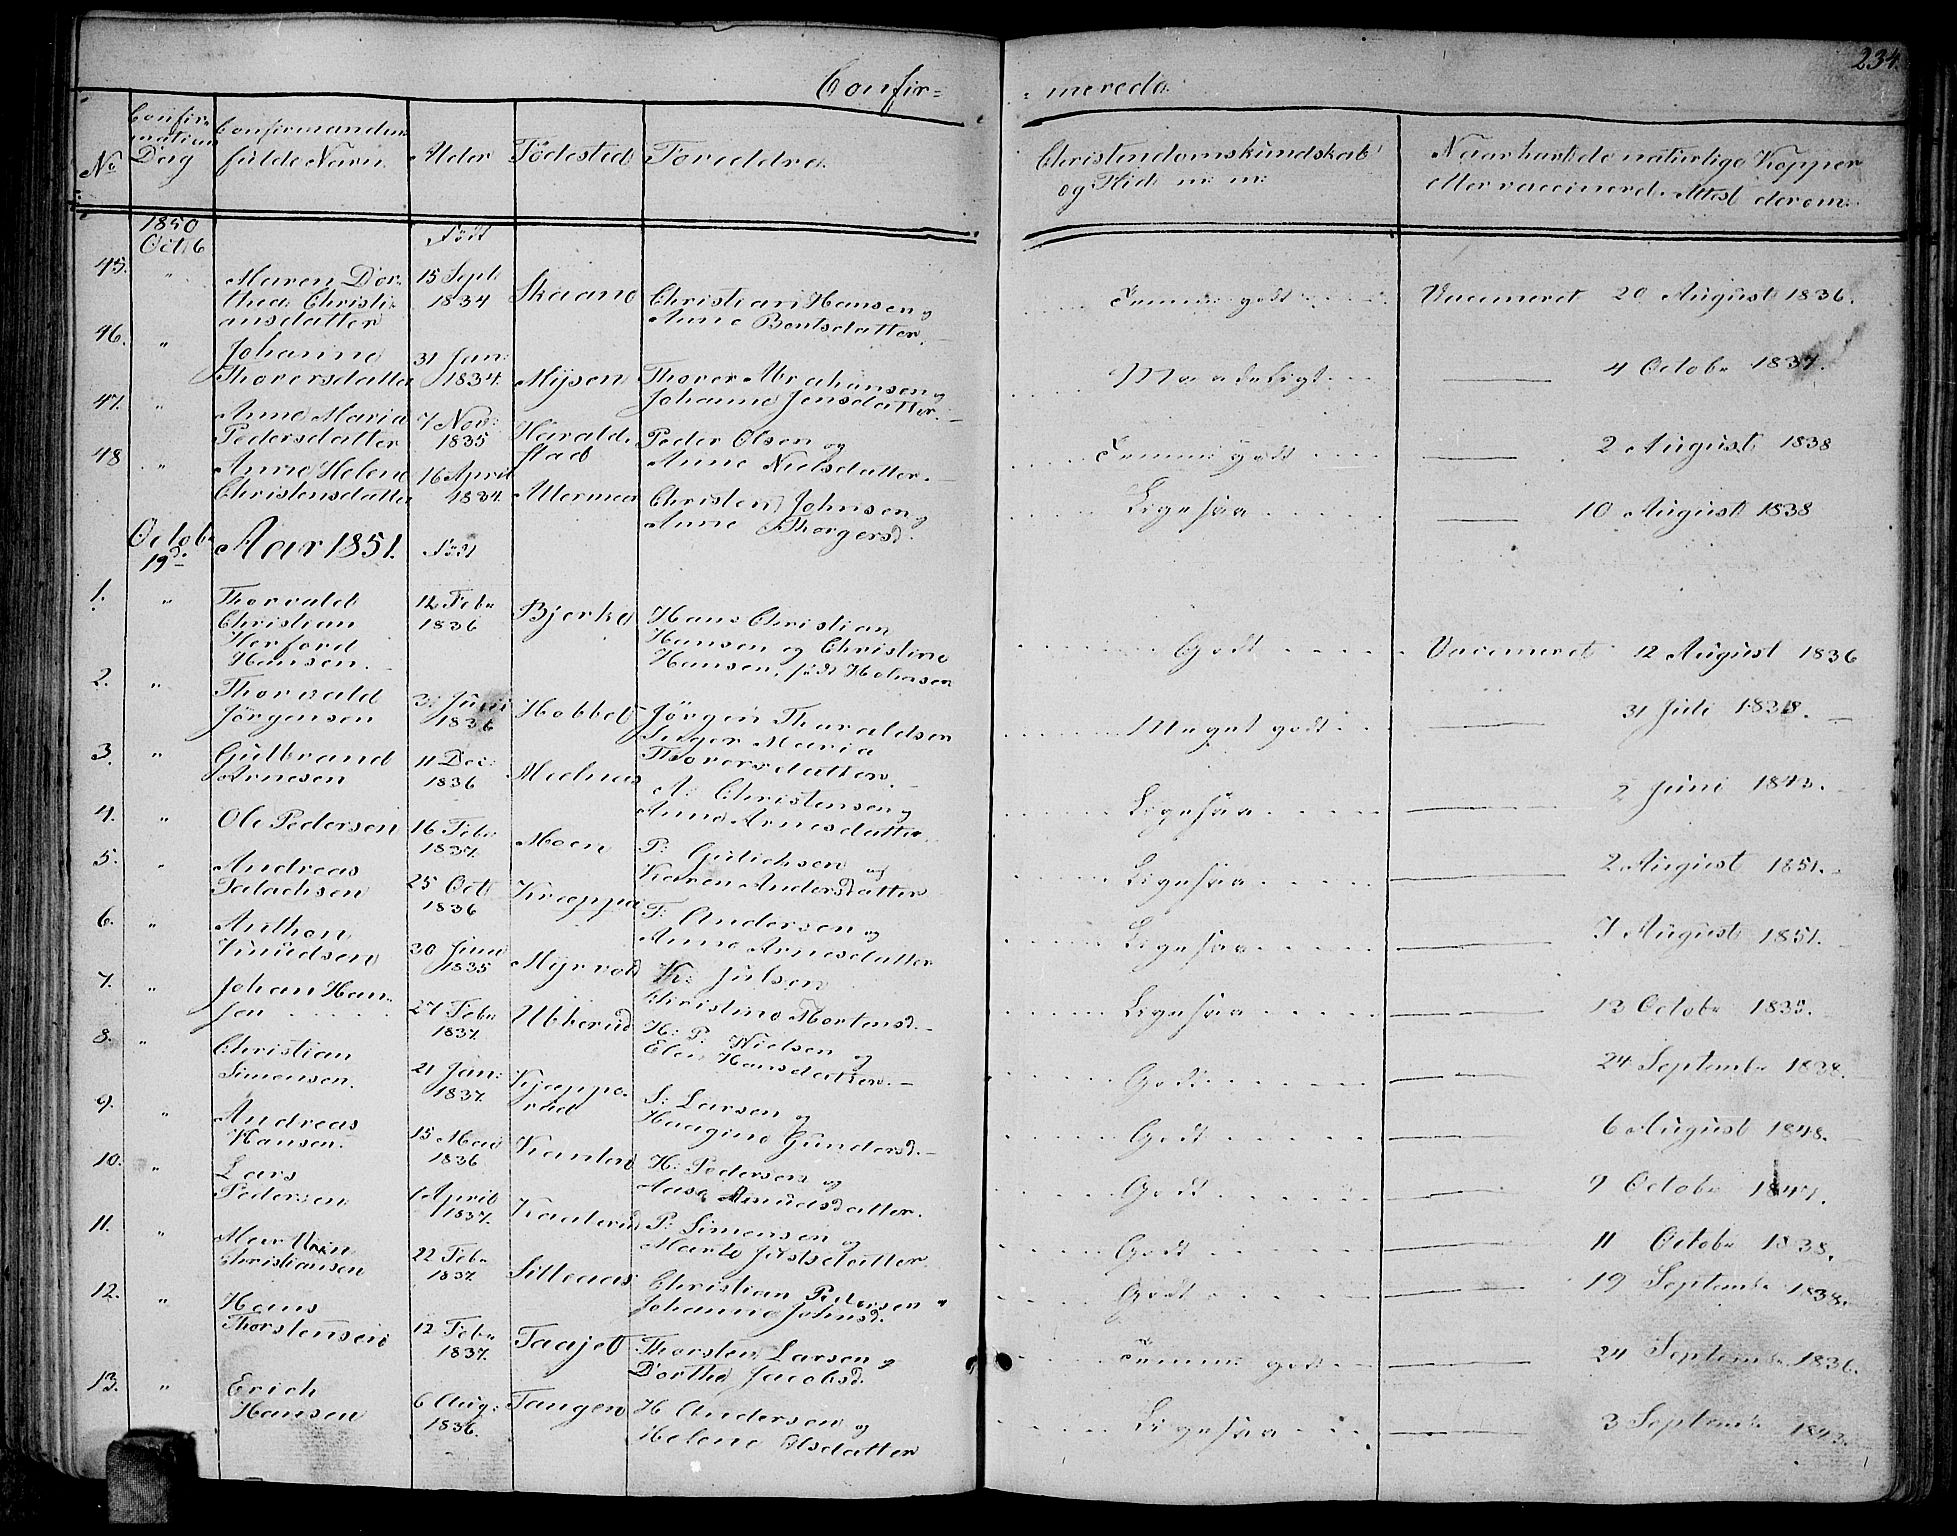 234.
Confir= =merede.
No
Confir=
mations
Dag
Confirmandens
fulde Navn.
Alder
Födested
Foreldre.
Christendomskundskab
og Flid m: m:
Naar havt de naturlige Kopper
eller vaccinered. Attest derom:
1850
Oct 6
Födt
45. " Maren Dor-
thea Christi-
ansdatter
15 Sept
1834
Skaane
Christian Hansen og
Anne Bentsdatter.
Temmel godt
Vaccineret 20 August 1836.
46. " Johanne
Thorersdatter
31 Jan:
1834.
Mysen
Thorer Abrahamsen og
Johanne Jensdatter.
Maadeligt
4 Octobr 1837.
47. " Anne Maria
Pedersdatter
7 Nov:
1835
Harald-
stad
Peder Olsen og
Anne Nielsdatter.
Temmel godt
2 August 1838
48 " Anne Helene
Christensdatter
16 April
1834.
Christen Johnsen og
Anne Thorgersd.
Ligesaa
10 August 1838
Octobr
19d
Aar 1851.
Födt
1. " Thorvald
Christian
Herford
Hansen.
12 Febr
1836
Bjerke
Hans Christian
Hansen og Christine
Hansen, født Holmsen
Godt
Vaccineret 12 August 1836
2. " Thorvald
Jörgensen
3: Juni
1836
Hobbel
Jörgen Tharaldsen
Inger Maria
Thorersdatter.
Meget godt
31 Juli 1838.
3. " Gulbrand
Arnesen
11 Dec:
1836
A: Christensen og
Anne Arnesdatter
Ligesaa
2 Juni 1843.
4. " Ole Pedersen
16 Feb:
1837.
Moen
P: Gulichsen og
Karen Andersdatter
Ligesaa
2 August 1851.
5. " Andreas
25 Oct
1836
Krappa
T: Andersen og
Anne Arnesdatter
Ligesaa
7 August 1851.
6. " Anthon
Knudsen
30 Juni
1835
Myrvold
K: Julsen
Christine Mortensd.
Ligesaa
13 Octobr 1835.
7. " Johan Han-
sen
27 Febr
1837.
Ubberud
H: P: Nielsen og
Elen Hansdatter.
Godt
24 Septembr 1838.
8. " Christian
Simensen.
21 Jan:
1837.
Kjeppe-
rud
S: Larsen og
Haagine Gundersd.
Godt
6 August 1848.
9. " Andreas
Hansen.
15 Mai
1836
H: Pedersen og
Aase Amundsdatter.
Godt
9 Octobr 1847.
10. " Lars
Pedersen
1 April
1837.
Kaaterud
P: Simensen og
Marte Jostsdatter
Godt
11 Octobr 1838.
11. "
Christiansen
22 Feb
1837.
Sitteaas
Christian Pedersen og
Johanne Johnsd.
Godt
19 Septembr 1838.
12. " Hans
Thorstensen
12 Febr
1837.
Taajet
Thorsten Larsen og
Dorthe Jacobsd.
Temmel godt
24 Septembr 1836.
13. " Erich
Hansen
6 Aug:
1836.
Tangen
H Andersen og
Helene Olsdatter
Ligesaa
3 Septembr 1843.